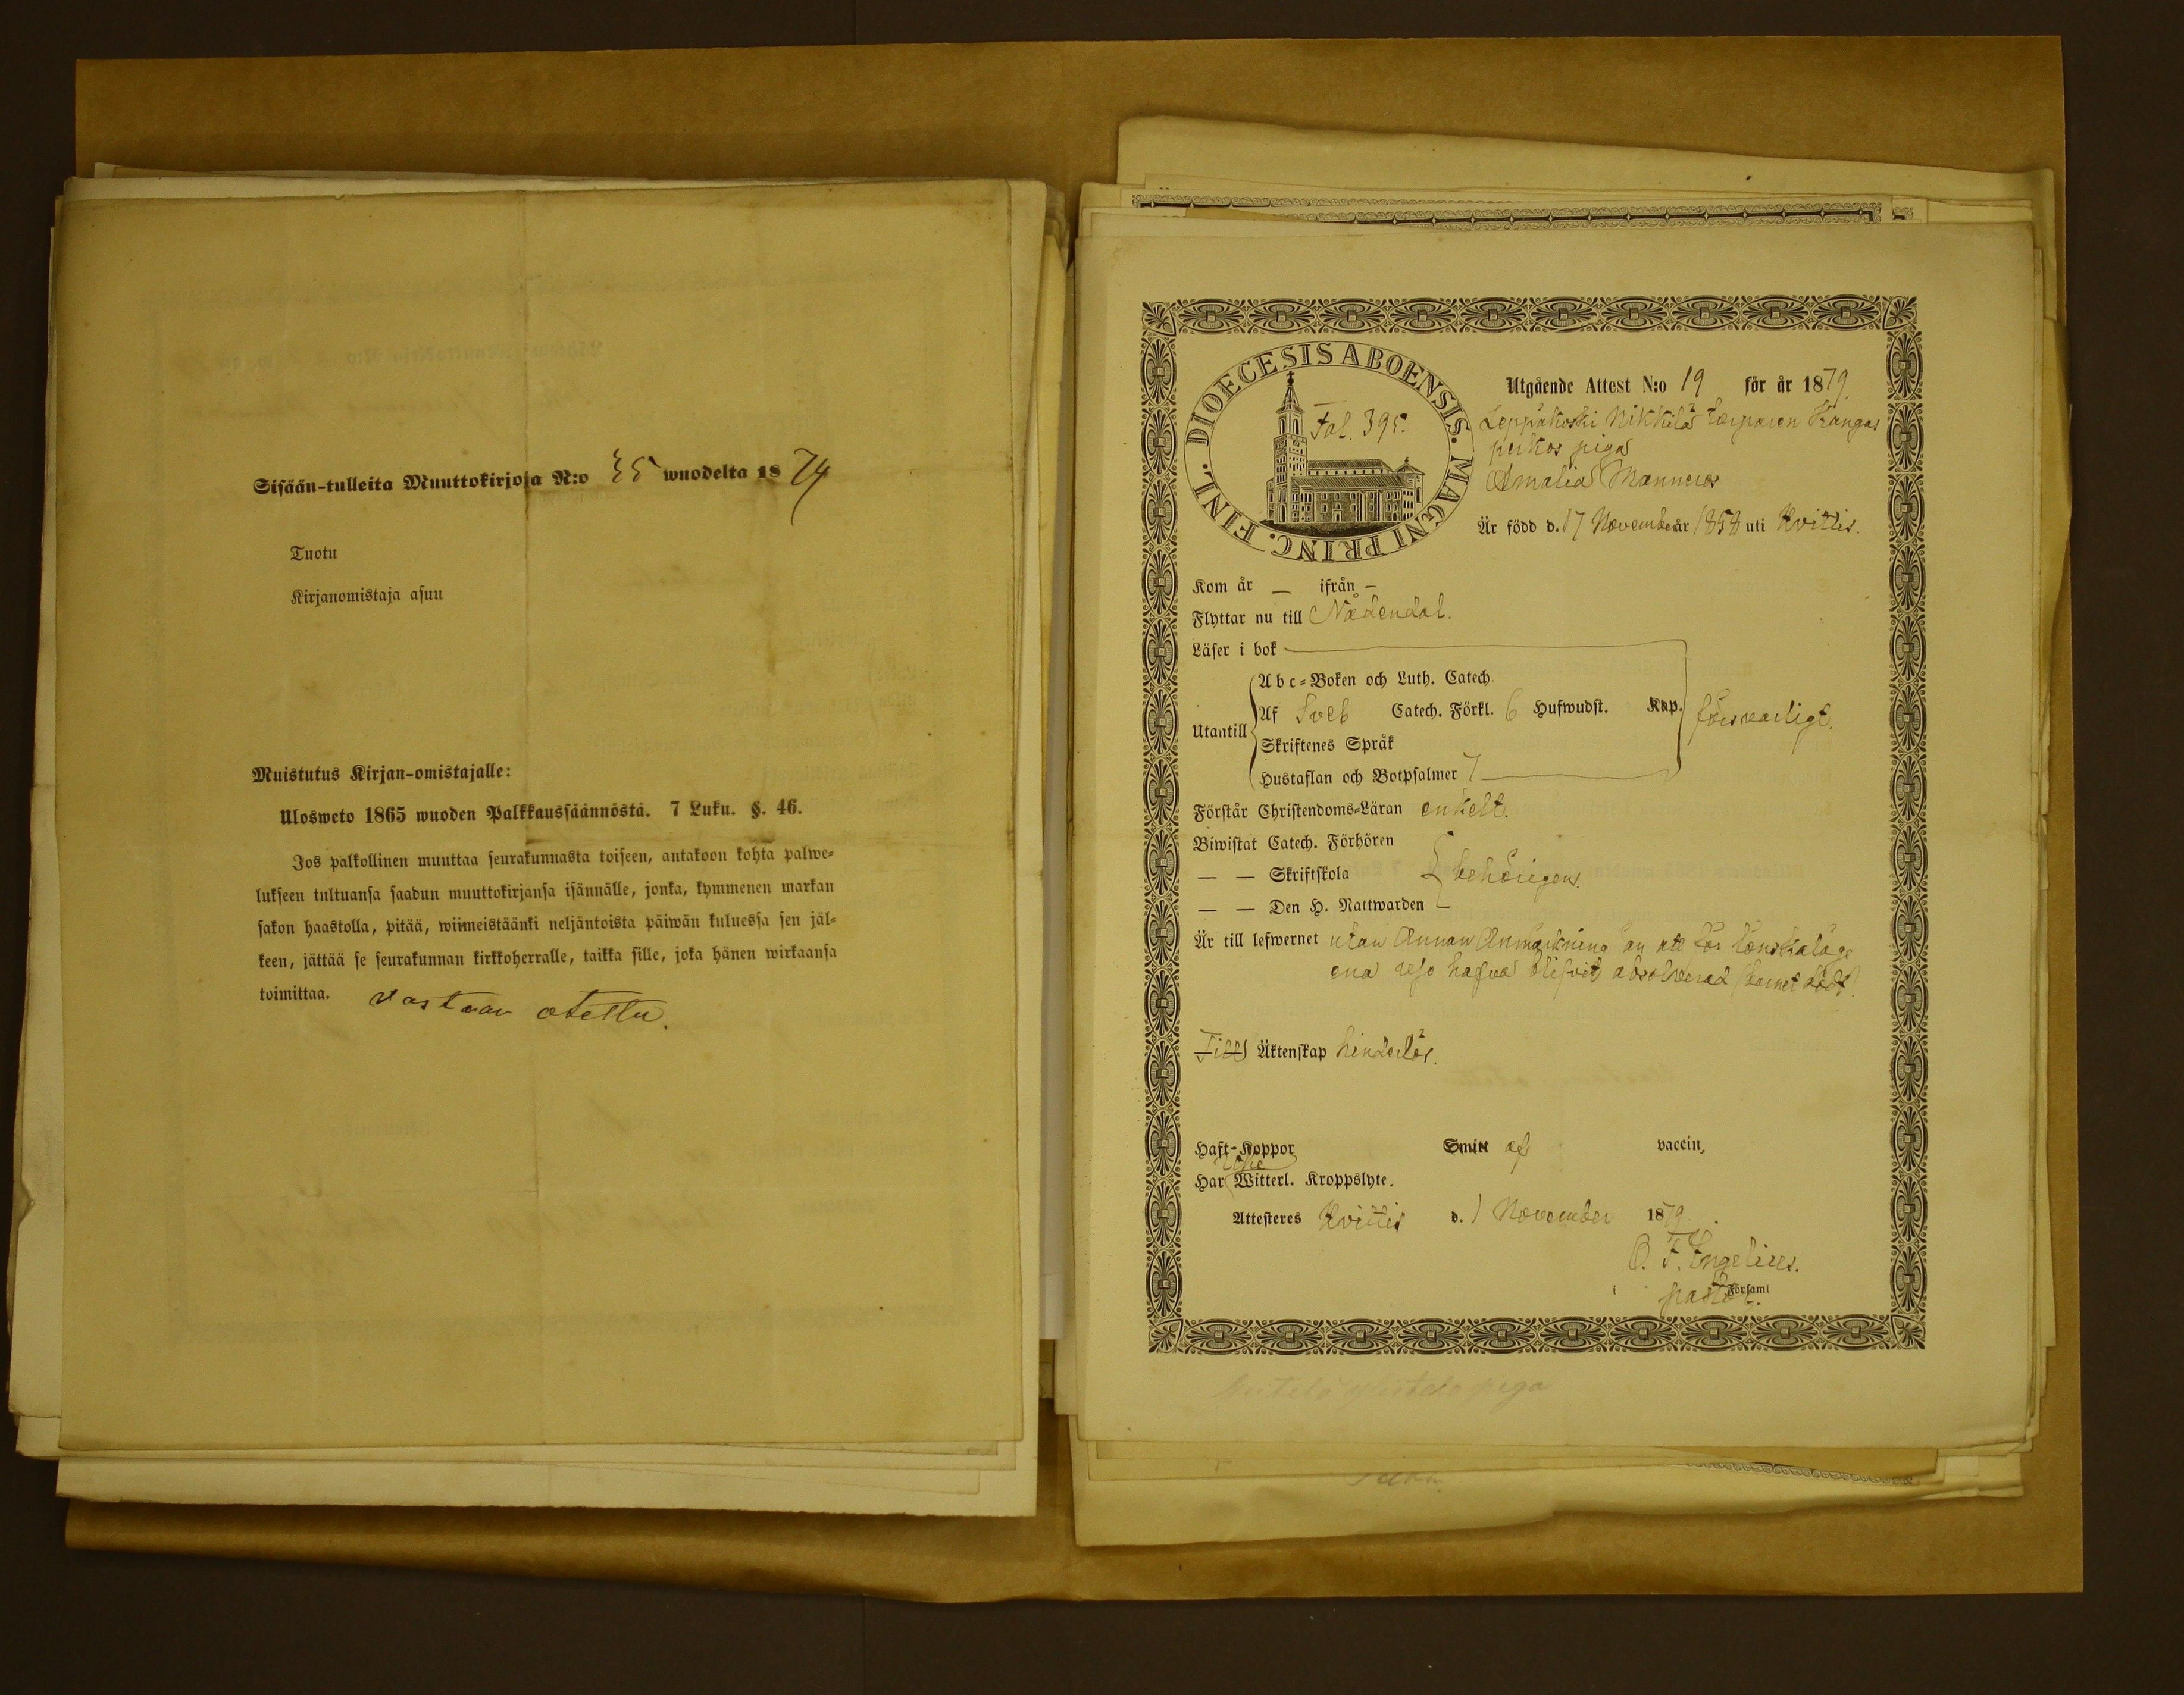 Sisään-tulleita Muuttokirjoja N:o 35 wuodelta 1879
Tuotu
Kirjanomistaja asuu
Muistutus Kirjan-omistajalle:
Ulosweto 1865 wuoden Palkkaussäännöstä. 7 Luku. §. 46.
Jos palkollinen muuttaa seurakunnasta toiseen, antakoon kohta palwe-
lukseen tultuansa saadun muuttokirjansa isännälle, jonka, kymmenen markan
sakon haastolla, pitää, wiimeistäänki neljäntoista päiwän kuluessa sen jäl-
keen, jättää se seurakunnan kirkkoherralle, taikka sille, joka hänen wirkaansa
toimittaa. vastaan otettu.
DIOECESIS ABOENSIS. MAGNI PRINC. FINL.
Fol. 395.
Utgående Attest N:o 19 för år 1879
Leppäkoski Nikkilä torparen Kangas
pigan
Amalia
Är född d. 17 November år 1858 uti Kvittis.
Kom år — ifrån —
Flyttar nu till Nådendal.
Läser i bok
Utantill
Abc-Boken och Luth. Catech.
Af Sveb Catech. Förkl. 6 Hufwudst. Kap.
försvarligt.
Skriftenes Språk
Hustaflan och Botpsalmer 7
Förstår Christendoms-Läran enkelt.
Biwistat Catech. Förhören
— — Skriftskola behörigen.
— — Den H. Nattwarden
Är till lefwernet utan annan anmärkning än att för lönskaläge
ena resa hafva blifvit absolverad (barnet dödt).
Till Äktenskap hinderlös.
Haft-Koppor Smitt af vaccin,
Har Witterl. Kroppslyte.
Attesteres Kvittis d. 1 November 1879.
O. F. Engelius.
i pastor. Församl
piga